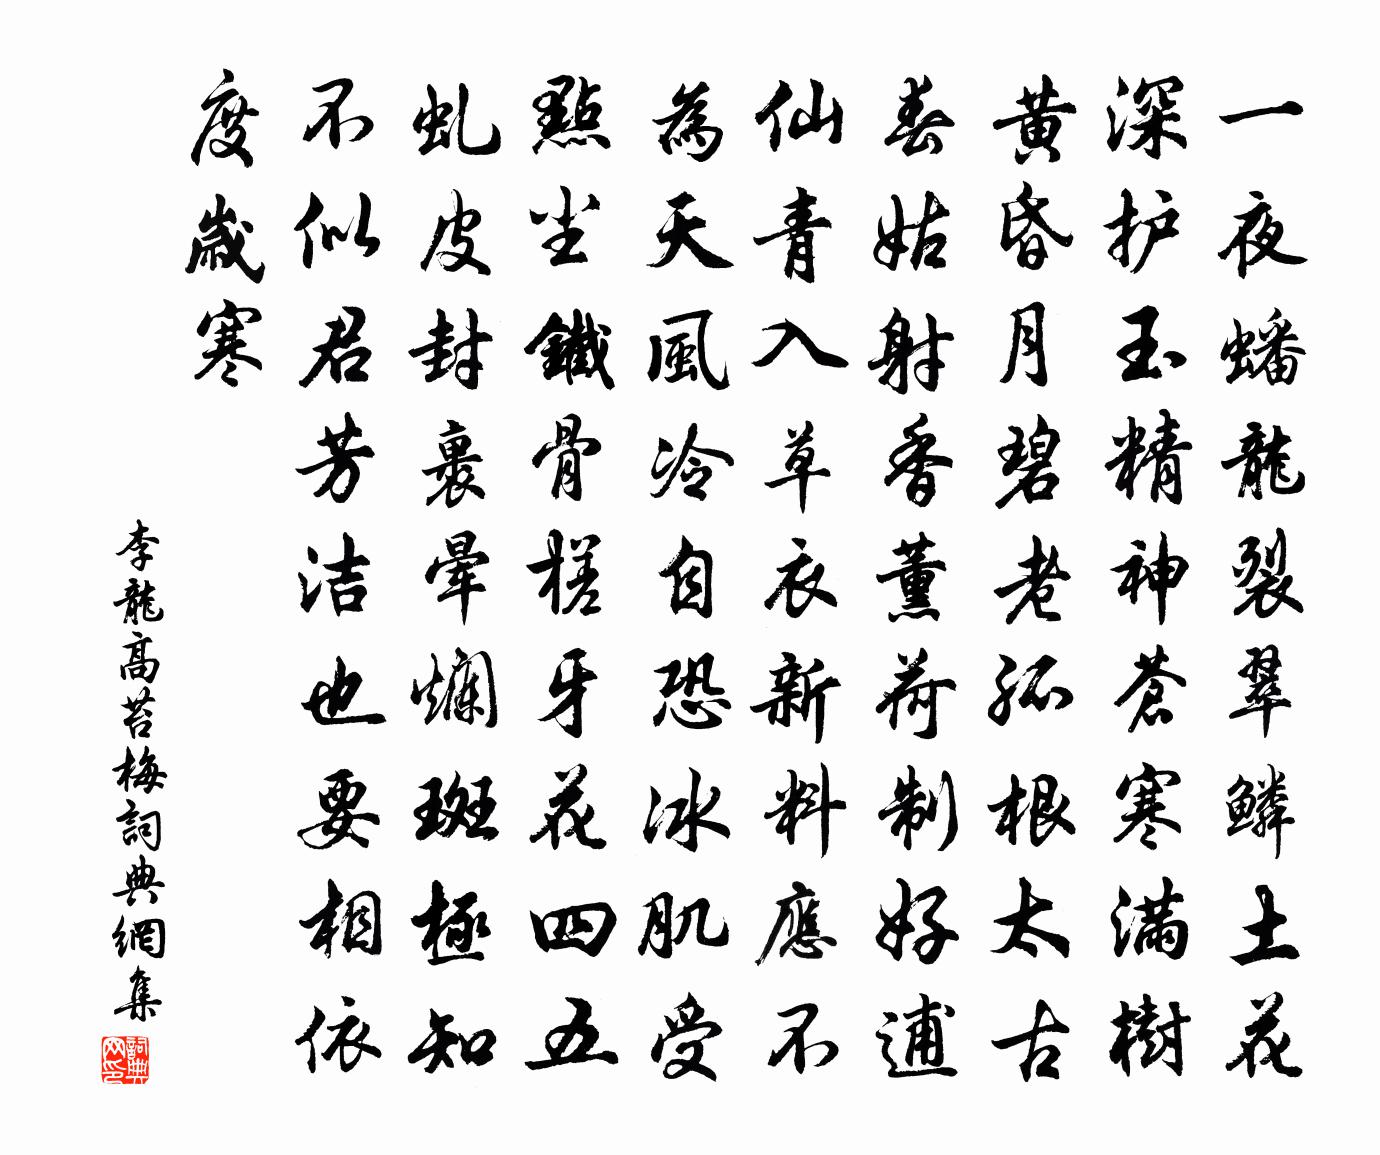 一夜蟠龍裂翠鱗土花
深护玉精神蒼寒滿樹
黃昏月碧老孤根太古
春姑射香薰荷制好逋
仙青入草衣新料應不
為天風冷自恐冰肌受
點尘鐵骨槎牙花四五
虬皮封裹暈斕斑極知
不似君芳洁也要相依
度歲寒
李龍高苔梅詞典網集
詞典网印